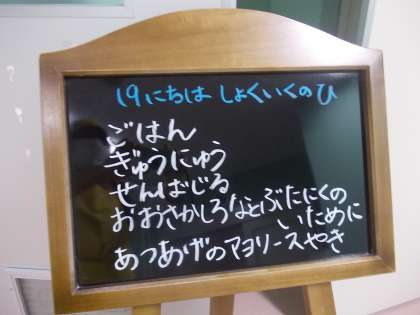 19にちは しょくいくのひ
ごはん
ぎゅうにゅう
せんばじる
おおさかしろなとぶたにくの
いために
あつあげのマヨソースやき